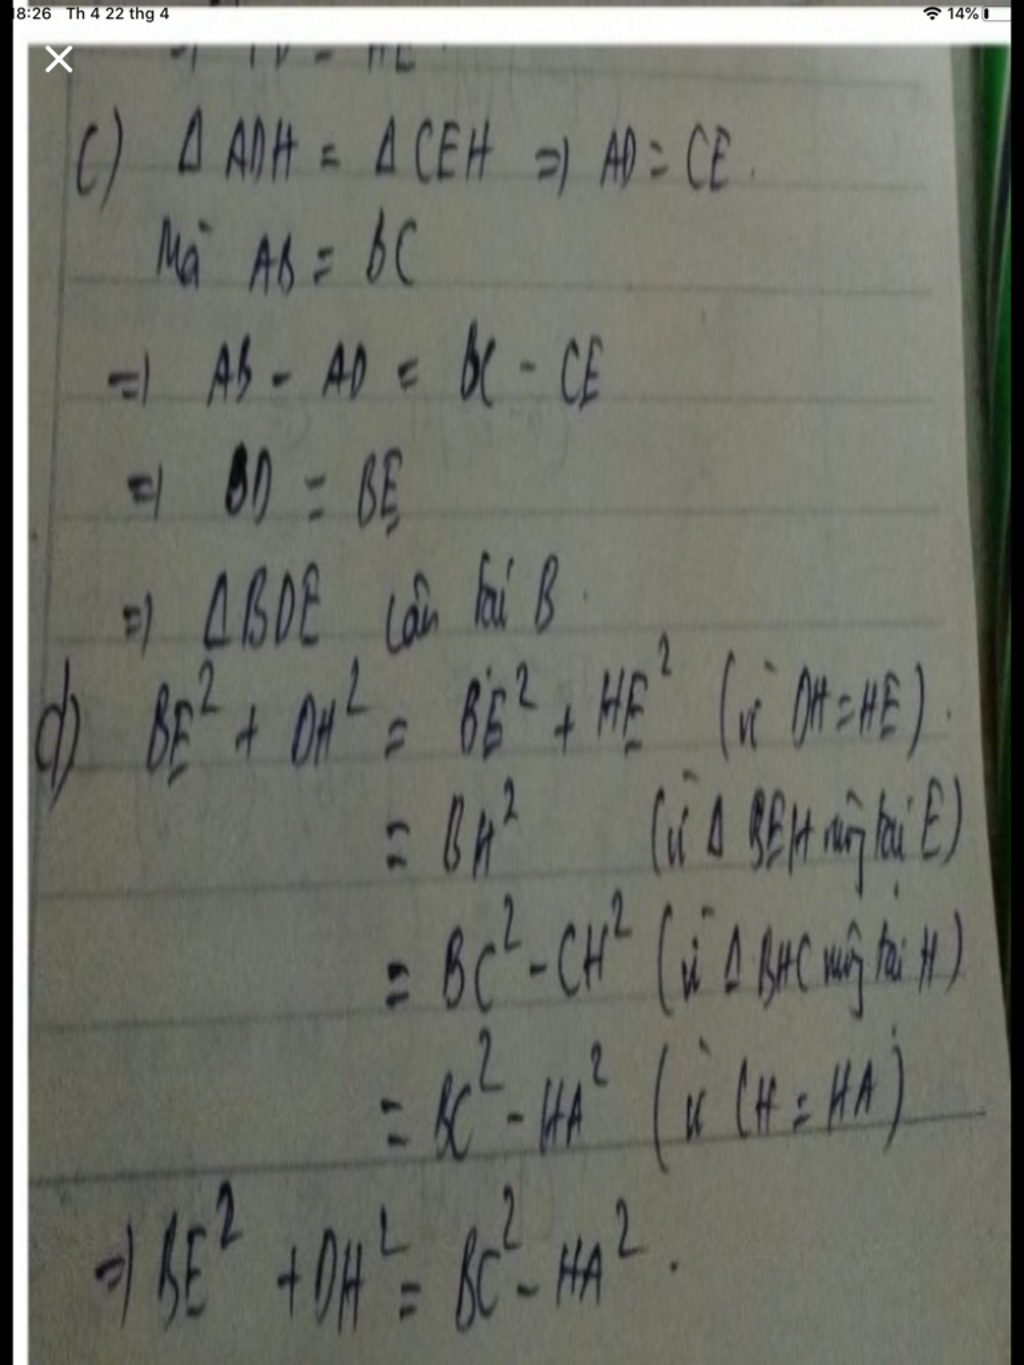 18:26 Th 4 22 thg 4 14%
c) Δ ADH = Δ CEH => AD = CE.
Mà AB = BC
=> AB - AD = BC - CE
=> BD = BE
=> ΔBDE cân tại B.
d) BE² + DH² = BE² + HE² (vì DH = HE).
= BH² (vì Δ BEH vuông tại E)
= BC² - CH² (vì Δ BHC vuông tại H)
= BC² - HA² (vì CH = HA)
=> BE² + DH² = BC² - HA².